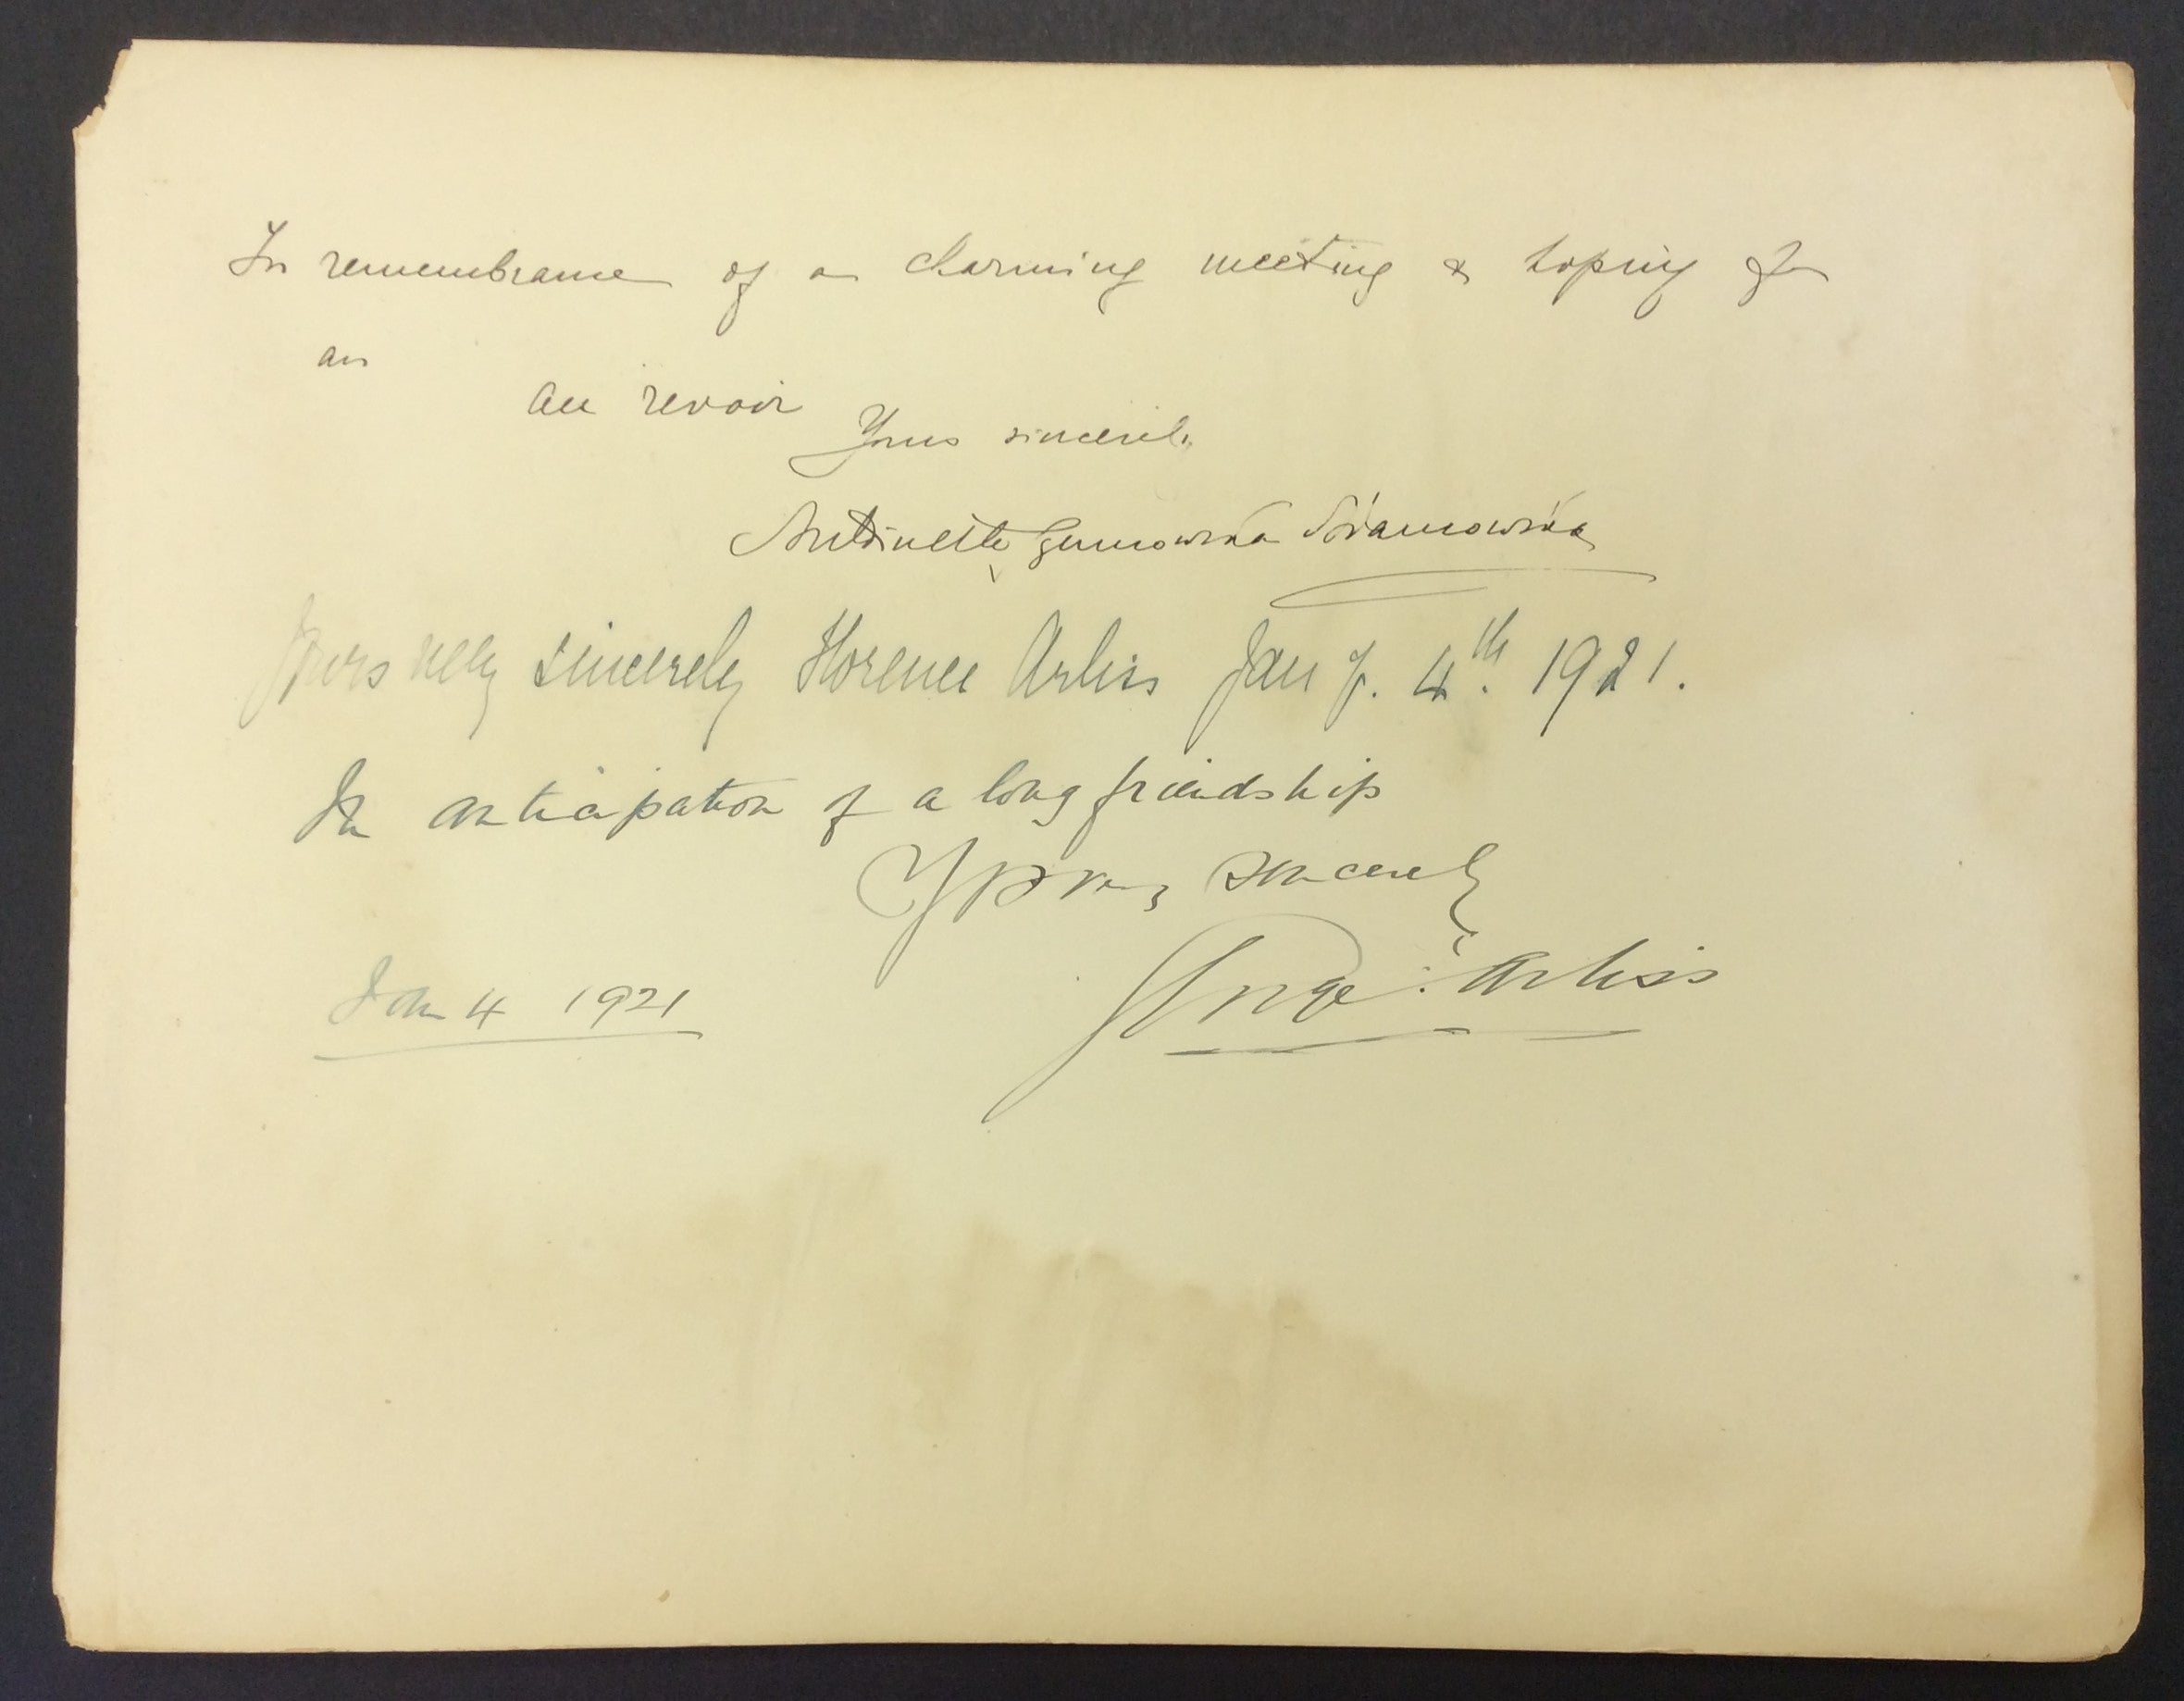 In remembrance of a charming meeting & hoping for
an
au revoir
Yours sincerely
Antoinette Szumowska Adamowska
Yours very sincerely Florence Arliss Jany. 4th. 1921.
In anticipation of a long friendship
Yours sincerely
George Arliss
Jan 4 1921